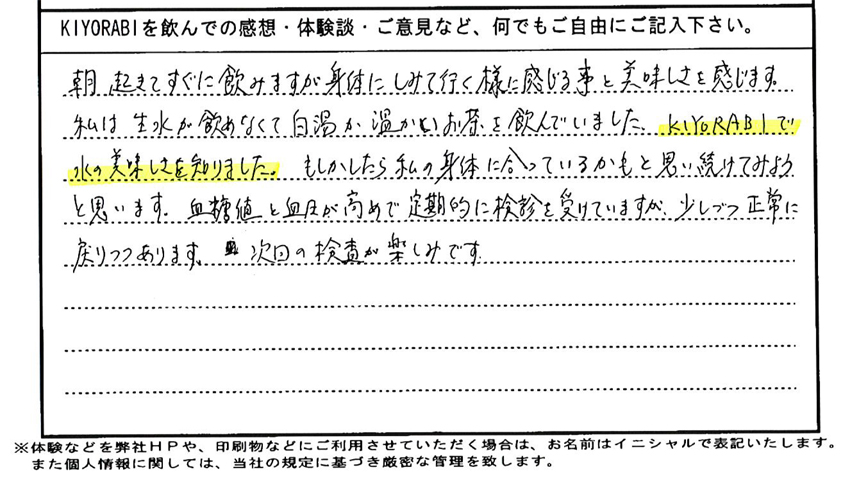 KIYORABIを飲んでの感想・体験談・ご意見など、何でもご自由にご記入下さい。
朝、起きてすぐに飲みますが身体にしみて行く様に感じる事と美味しさを感じます。
私は生水が飲めなくて白湯か温かいお茶を飲んでいました。KIYORABIで
水の美味しさを知りました。もしかしたら私の身体に合っているかもと思い続けてみよう
と思います。血糖値と血圧が高めで定期的に検診を受けていますが、少しづつ正常に
戻りつつあります。次回の検査が楽しみです。
※体験などを弊社HPや、印刷物などにご利用させていただく場合は、お名前はイニシャルで表記いたします。
また個人情報に関しては、当社の規定に基づき厳密な管理を致します。